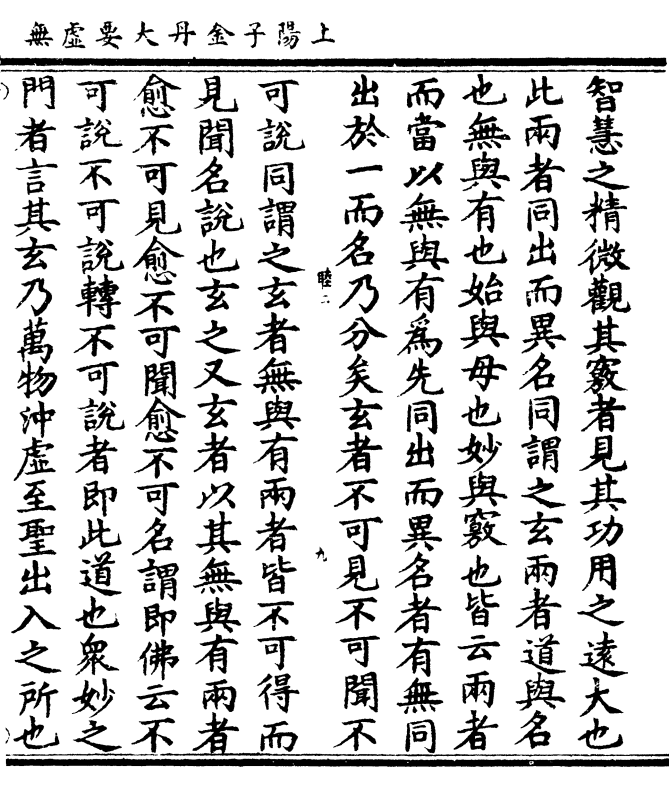 上陽子金丹大要虛無
智慧之精微觀其竅者見其功用之遠大也
此兩者同出而異名同謂之玄兩者道與名
也無與有也始與母也妙與竅也皆云兩者
而當以無與有爲先同出而異名者有無同
出於一而名乃分矣玄者不可見不可聞不
睦二
九
可說同謂之玄者無與有兩者皆不可得而
見聞名說也玄之又玄者以其無與有兩者
愈不可見愈不可聞愈不可名謂即佛云不
可說不可說轉不可說者即此道也衆妙之
門者言其玄乃萬物沖虛至聖出入之所也